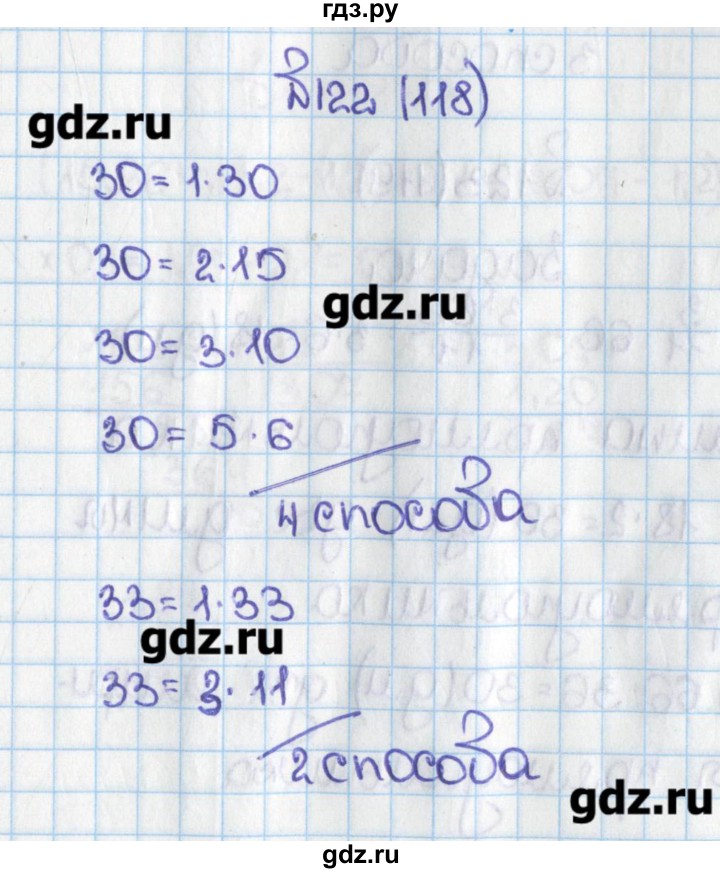 гдз.ру
№122 (118)
gdz.ru
30 = 1·30
30 = 2·15
gdz.ru
30 = 3·10
30 = 5·6
4 способа
33 = 1·33
gdz.ru
33 = 3·11
2 способа
gdz.ru
gdz.ru